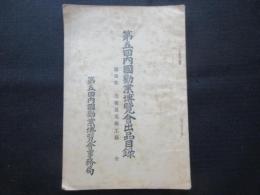 第五回內國勸業博覽會出品目錄
第五回內國勸業博覽會事務局